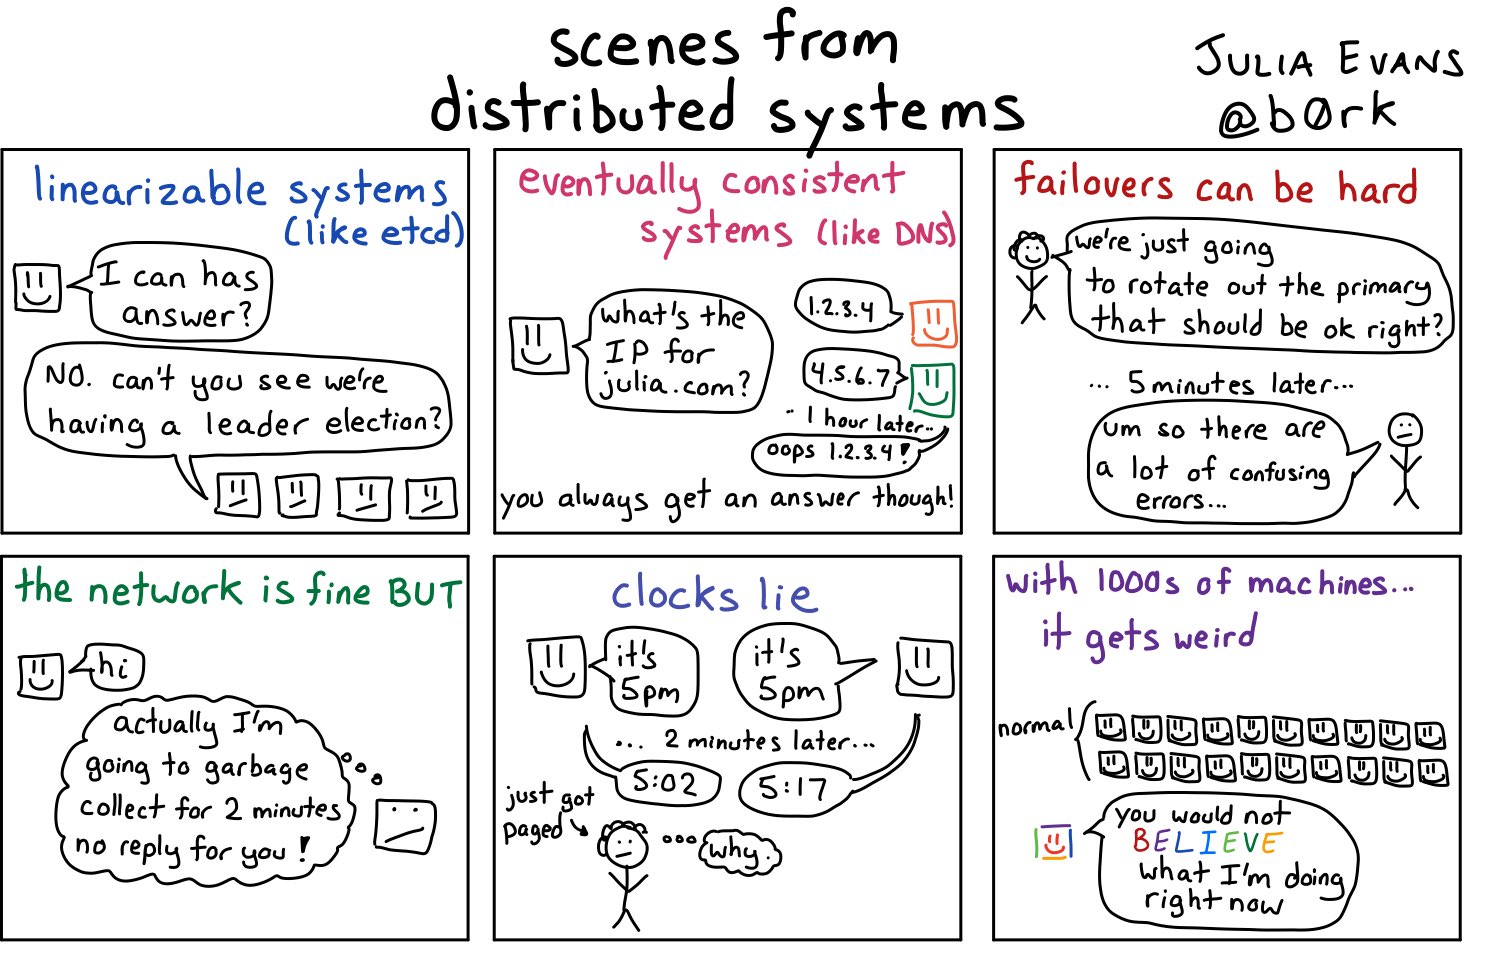 scenes from
distributed systems
JULIA EVANS
@b0rk
linearizable systems
(like etcd)
I can has
answer?
NO. can't you see we're
having a leader election?
eventually consistent
systems (like DNS)
what's the
IP for
julia.com?
1.2.3.4
4.5.6.7
.. 1 hour later..
oops 1.2.3.4!
you always get an answer though!
failovers can be hard
we're just going
to rotate out the primary
that should be ok right?
... 5 minutes later...
um so there are
a lot of confusing
errors...
the network is fine BUT
hi
actually I'm
going to garbage
collect for 2 minutes
no reply for you!
clocks lie
it's
5pm
it's
5pm
... 2 minutes later...
5:02
5:17
just got
paged
why.
with 1000s of machines...
it gets weird
normal
you would not
BELIEVE
what I'm doing
right now